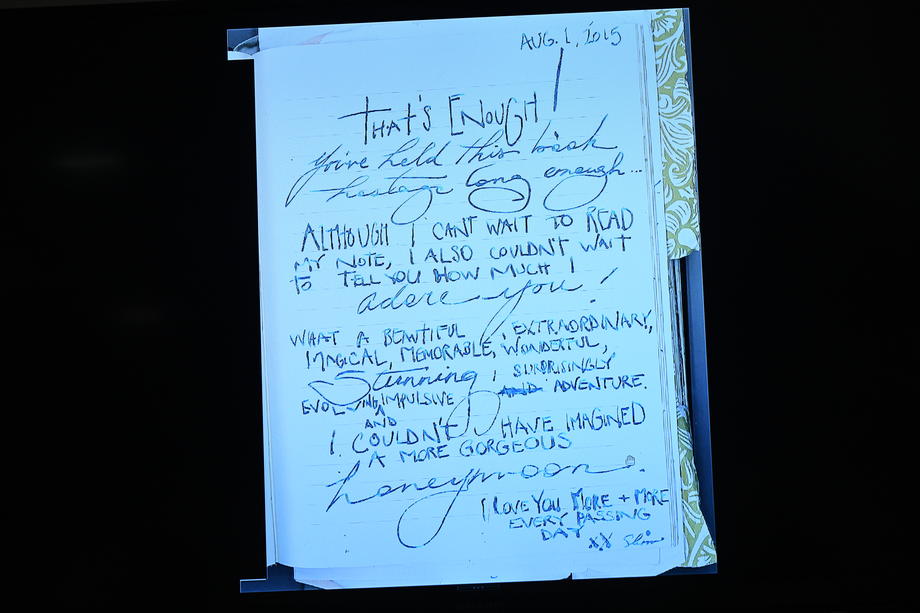 AUG. 1, 2015
THAT'S ENOUGH!
You've held this book
hostage long enough...
ALTHOUGH I CANT WAIT TO READ
MY NOTE, I ALSO COULDN'T WAIT
TO TELL YOU HOW MUCH I
adore you!
WHAT A BEAUTIFUL, EXTRAORDINARY,
MAGICAL, MEMORABLE, WONDERFUL,
Stunning, SURPRISINGLY
EVOLVING, IMPULSIVE AND ADVENTURE.
AND
I COULDN'T HAVE IMAGINED
A MORE GORGEOUS
honeymoon.
I LOVE YOU MORE + MORE
EVERY PASSING
DAY
XX Slim